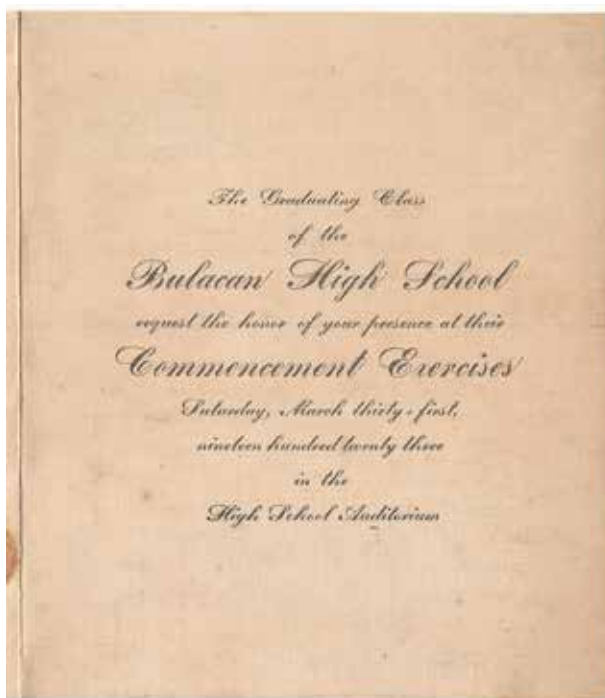 The Graduating Class
of the
Bulacan High School
request the honor of your presence at their
Commencement Exercises
Saturday, March thirty-first,
nineteen hundred twenty three
in the
High School Auditorium